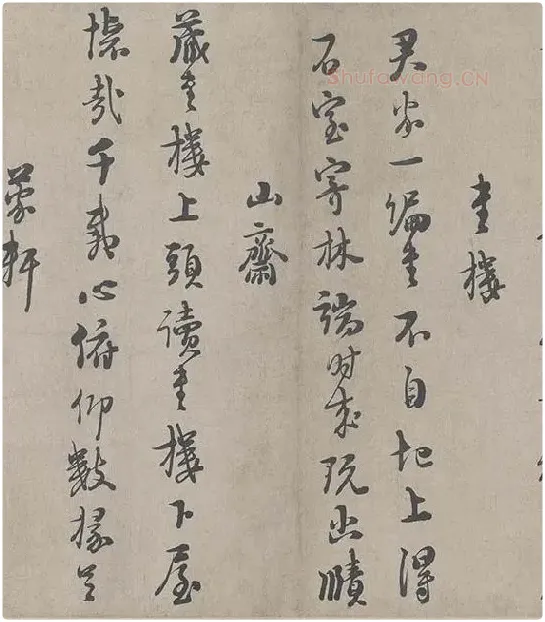 書樓
君家一編書不自圯上得
石室寄林端時來玩幽賾
山齋
藏書樓上頭讀書樓下屋
懷哉千載心俯仰數椽足
蒙軒
Shufawang.CN